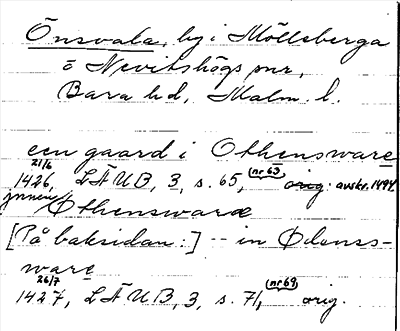 Önsvala, by i Mölleberga
o Nevitshögs snr,
Bara hd, Malm. l.
een gaard i Othensware
21/6
1426, LÄUB, 3, s. 65, (nr 63) orig. avskr. 1494.
jnnen Othenswaræ
[På baksidan:] -- in Ødenss-
ware
26/7
1427, LÄUB, 3, s. 71, (nr 69) orig.